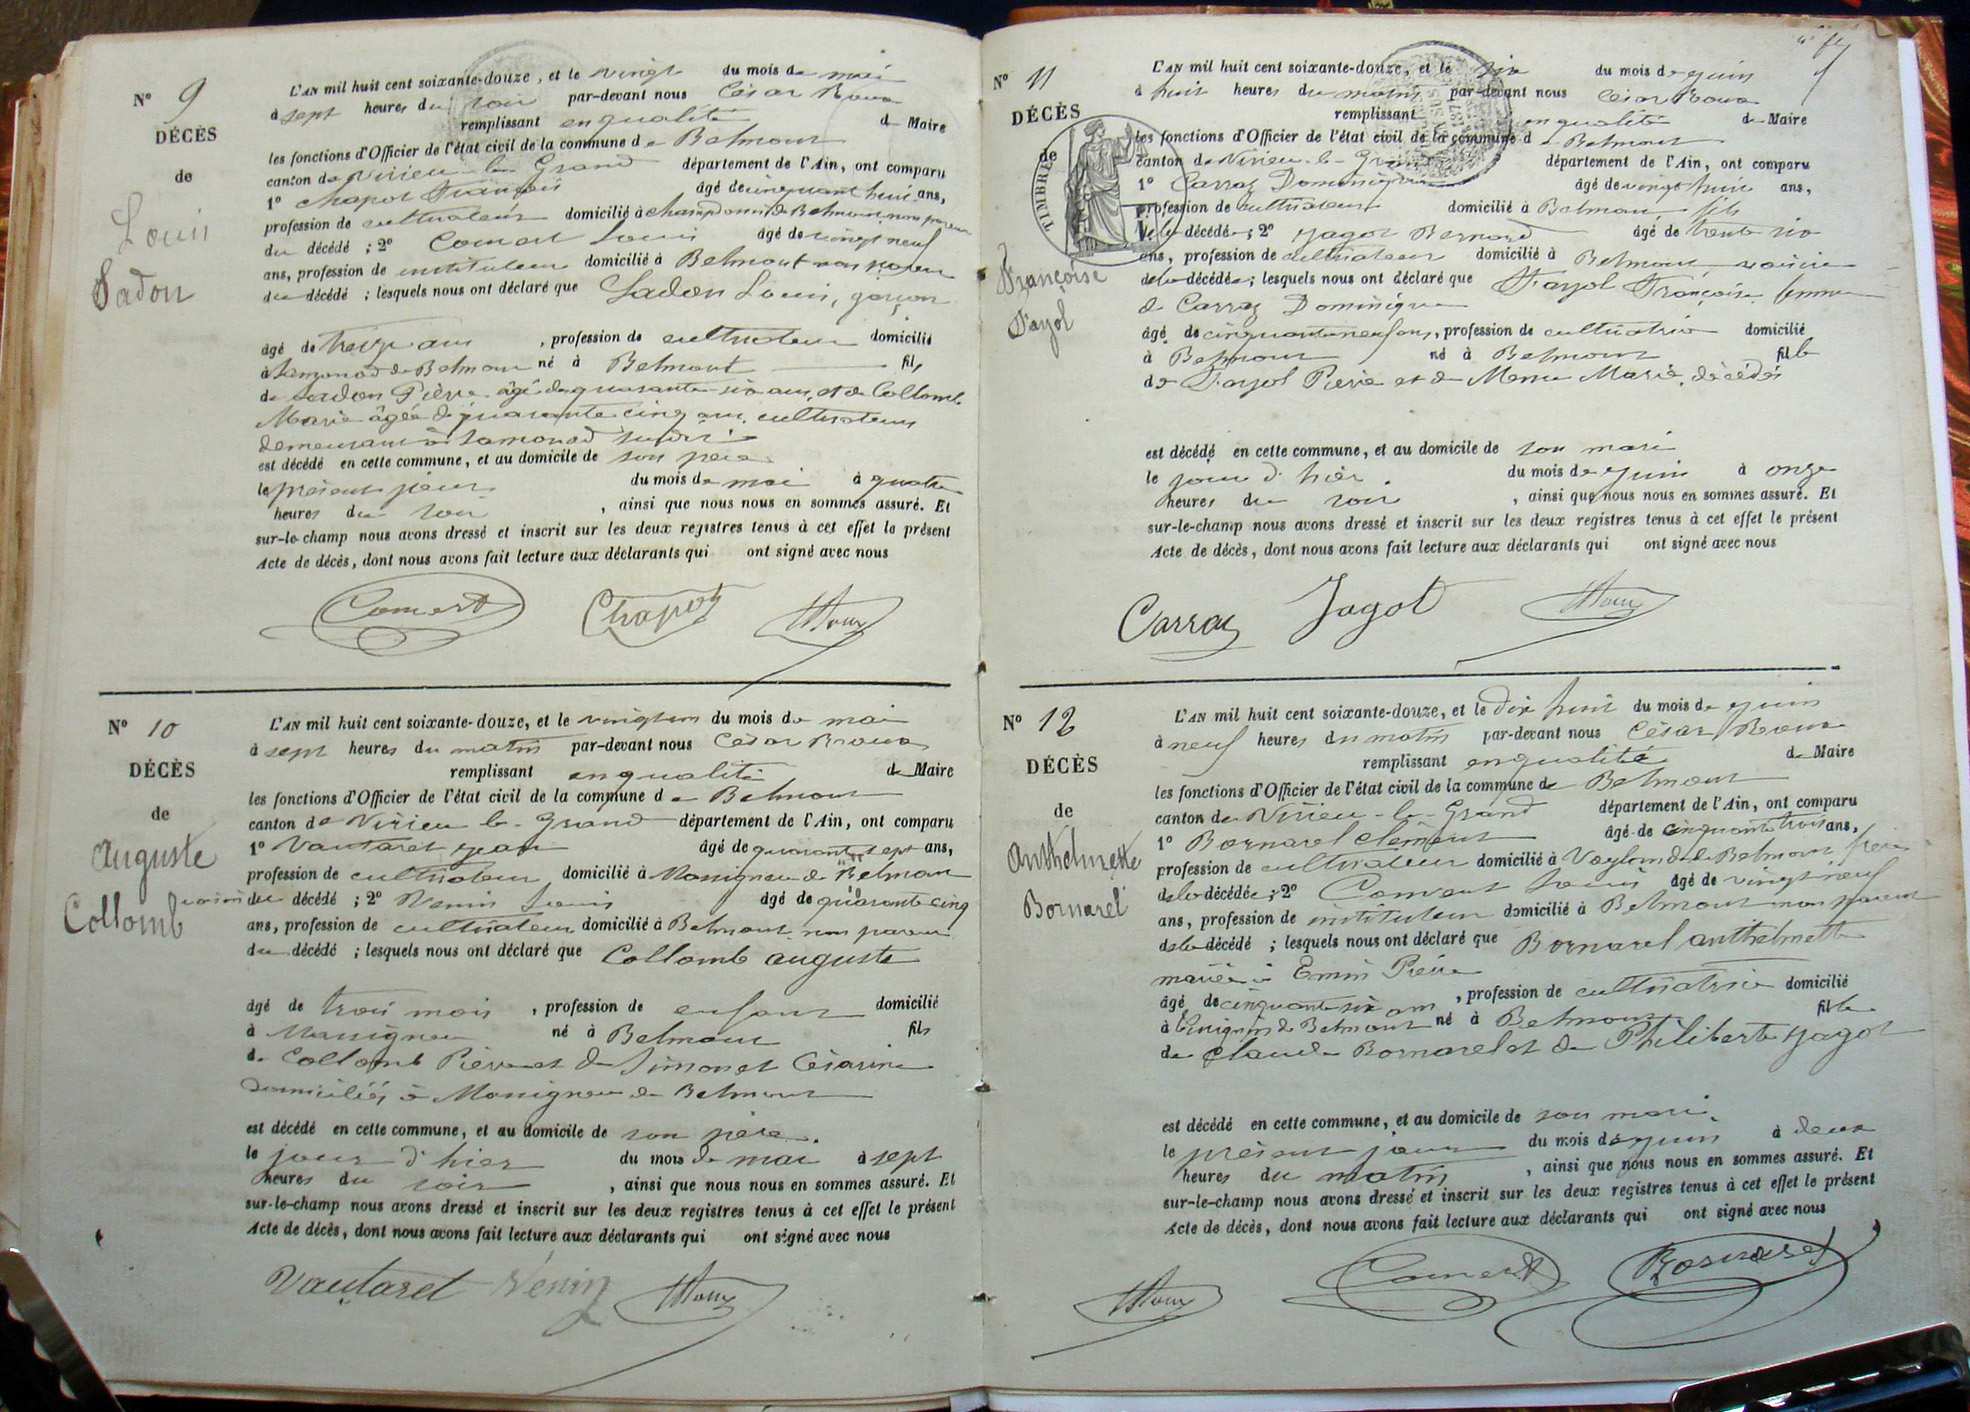 N° 9
DÉCÈS
de
Louis
Sadon
L'AN mil huit cent soixante-douze, et le vingt du mois de mai
à sept heures du soir par-devant nous César Roux
remplissant en qualité de Maire
les fonctions d'Officier de l'état civil de la commune de Belmont
canton de Virieu-le-Grand département de l'Ain, ont comparu
1° Chapot François âgé de cinquant huit ans,
profession de cultivateur domicilié à de Belmont non parent
du décédé ; 2° Comert Louis âgé de vingt neuf
ans, profession de instituteur domicilié à Belmont non parent
du décédé ; lesquels nous ont déclaré que Sadon Louis, garçon
âgé de treize ans, profession de cultivateur domicilié
à Samonod de Belmont né à Belmont fils
de Sadon Pierre âgé de quarante six ans, et de Collomb
Marie âgée de quarante cinq ans, cultivateurs
demeurant à Samonod susdit
est décédé en cette commune, et au domicile de son père
le présent jour du mois de mai à quatre
heures du soir, ainsi que nous nous en sommes assuré. Et
sur-le-champ nous avons dressé et inscrit sur les deux registres tenus à cet effet le présent
Acte de décès, dont nous avons fait lecture aux déclarants qui ont signé avec nous
Comert Chapot Roux
N° 10
DÉCÈS
de
Auguste
Collomb
L'AN mil huit cent soixante-douze, et le vingt un du mois de mai
à sept heures du matin par-devant nous César Roux
remplissant en qualité de Maire
les fonctions d'Officier de l'état civil de la commune de Belmont
canton de Virieu-le-Grand département de l'Ain, ont comparu
1° Vautaret Jean âgé de quarante sept ans,
profession de cultivateur domicilié à Massignieu de Belmont
voisin du décédé ; 2° Venin Louis âgé de quarante cinq
ans, profession de cultivateur domicilié à Belmont non parent
du décédé ; lesquels nous ont déclaré que Collomb auguste
âgé de trois mois, profession de enfant domicilié
à Massignieu né à Belmont fils
de Collomb Pierre et de Simonet Césarine
domiciliés à Massignieu de Belmont
est décédé en cette commune, et au domicile de son père.
le jour d'hier du mois de mai à sept
heures du soir, ainsi que nous nous en sommes assuré. Et
sur-le-champ nous avons dressé et inscrit sur les deux registres tenus à cet effet le présent
Acte de décès, dont nous avons fait lecture aux déclarants qui ont signé avec nous
Vautaret Venin Roux
N° 11
DÉCÈS
de
TIMBRE
Françoise
Fayol
L'AN mil huit cent soixante-douze, et le six du mois de juin
à huit heures du matin par-devant nous César Roux
remplissant en qualité de Maire
les fonctions d'Officier de l'état civil de la commune de Belmont
canton de Virieu-le-Grand département de l'Ain, ont comparu
1° Carraz Dominique âgé de vingt huit ans,
profession de cultivateur domicilié à Belmont fils
de la décédée ; 2° Jagot Bernard âgé de trente six
ans, profession de cultivateur domicilié à Belmont voisin
de la décédée ; lesquels nous ont déclaré que Fayol Françoise femme
de Carraz Dominique
âgé de cinquante neuf ans, profession de cultivatrice domicilié
à Belmont né à Belmont fille
de Fayol Pierre et de Marie, décédés
est décédé en cette commune, et au domicile de son mari
le jour d'hier du mois de juin à onze
heures du soir, ainsi que nous nous en sommes assuré. Et
sur-le-champ nous avons dressé et inscrit sur les deux registres tenus à cet effet le présent
Acte de décès, dont nous avons fait lecture aux déclarants qui ont signé avec nous
Carraz Jagot Roux
N° 12
DÉCÈS
de
Anthelmette
Bornarel
L'AN mil huit cent soixante-douze, et le dix huit du mois de juin
à neuf heures du matin par-devant nous César Roux
remplissant en qualité de Maire
les fonctions d'Officier de l'état civil de la commune de Belmont
canton de Virieu-le-Grand département de l'Ain, ont comparu
1° Bornarel Clément âgé de cinquante trois ans,
profession de cultivateur domicilié à de Belmont frère
de la décédée ; 2° Comert Louis âgé de vingt neuf
ans, profession de instituteur domicilié à Belmont non parent
de la décédé ; lesquels nous ont déclaré que Bornarel anthelmette
mariée à Emin Pierre
âgé de cinquante six ans, profession de cultivatrice domicilié
à de Belmont né à Belmont fille
de Claude Bornarel et de Philiberte Jagot
est décédé en cette commune, et au domicile de son mari.
le présent jour du mois de juin à deux
heures du matin, ainsi que nous nous en sommes assuré. Et
sur-le-champ nous avons dressé et inscrit sur les deux registres tenus à cet effet le présent
Acte de décès, dont nous avons fait lecture aux déclarants qui ont signé avec nous
Roux Comert Bornarel